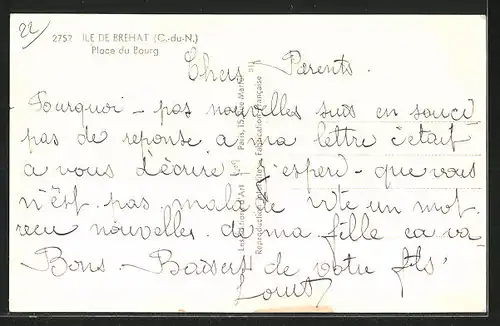 22
2752 ILE DE BREHAT (C.-du-N.)
Place du Bourg
Chers Parents.
Pourquoi - pas nouvelles suis en souci
pas de reponse a ma lettre c'etait
a vous d'écrire - j'espere - que vous
n'êst pas malade vite un mot.
recu nouvelles de ma fille ca va
Bons - Baisers de votre fils
Louis
Les Editions d'Art Paris, 15, Rue Martel
Reproduction Fabrication Française